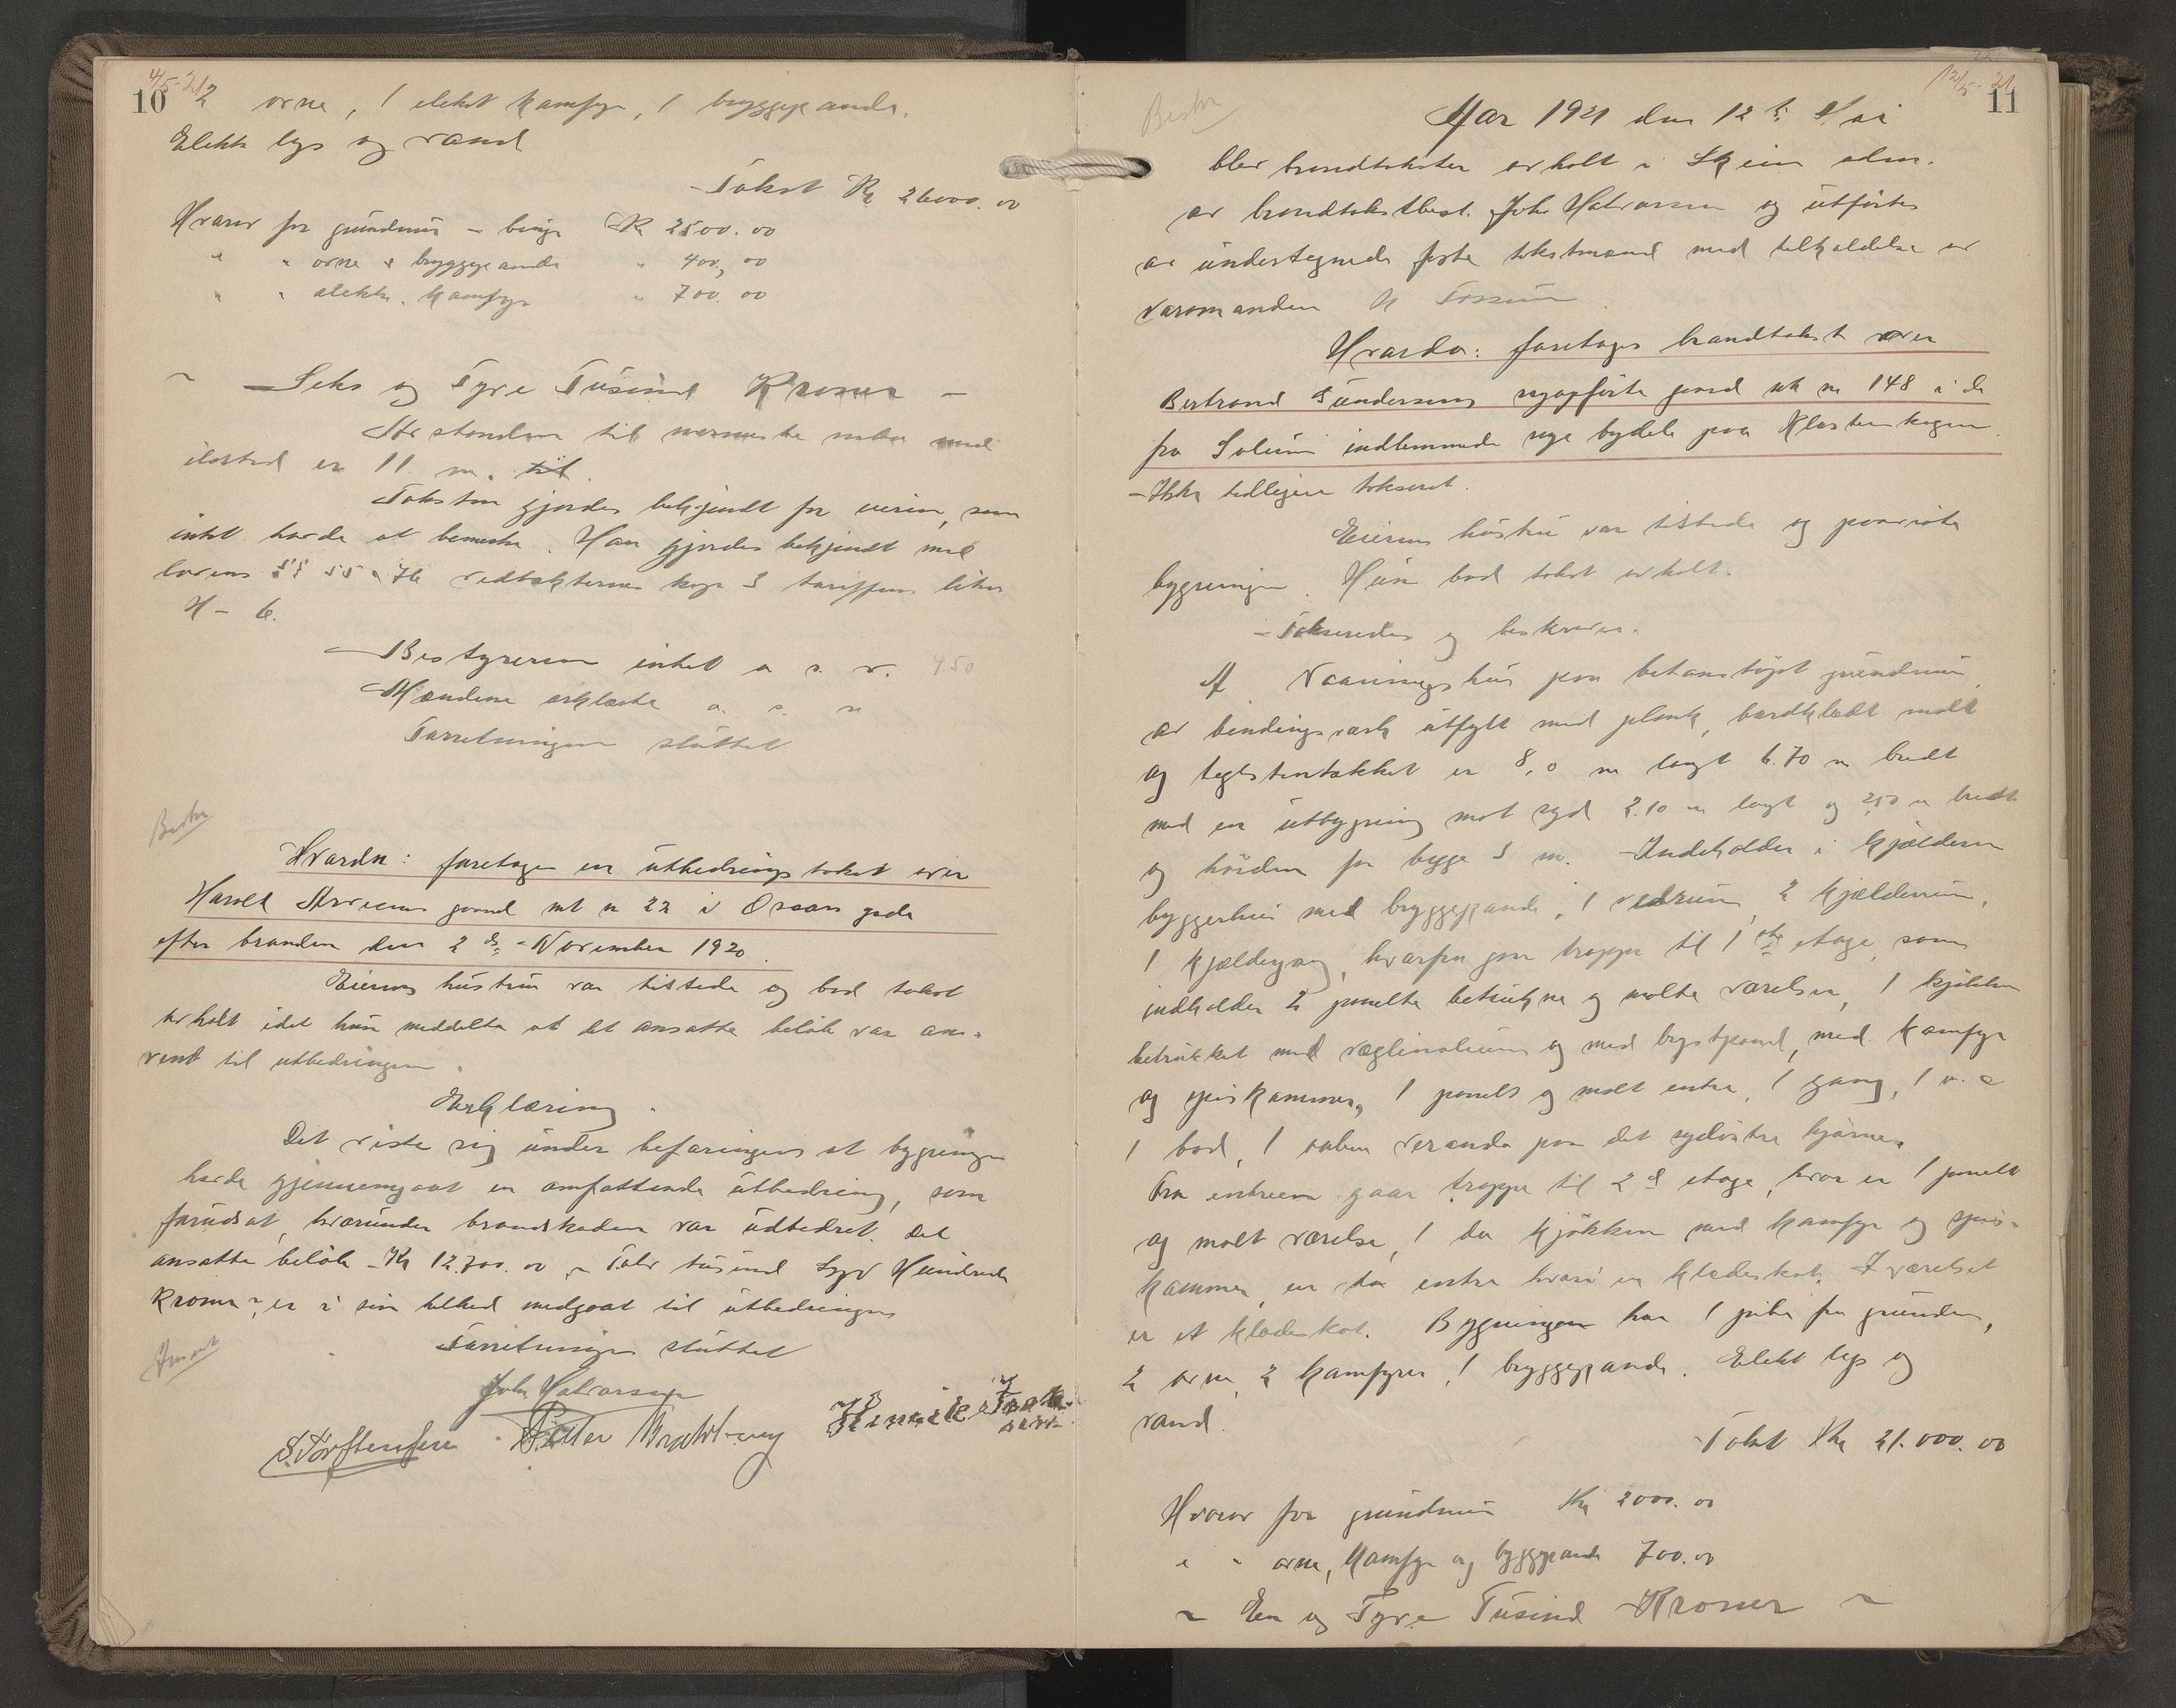 10
4/5-21
2 ovne, 1 elekt kamfyr, 1 bryggepande.
Elektr lys og vand
Takst Kr 26000.00
Hvorav for grundmur – binge Kr 2500.00
" " ovne & bryggepande " 400,00
" " elektr. kamfyr " 700.00
~ Seks og Tyve Tusind Kroner –
Avstanden til nærmeste nabo med
ildsted er 11 m.
Taksten gjordes bekjendt for eieren, som
intet havde at bemerke. Han gjordes bekjendt med
lovens §§ 55 & 76 vedtækternes kap 3 tariffens litra
H – 6.
Bestyreren intet a s. v. 4.50
Mændene erklærte a. s. v
Forretningen sluttet
Hvorda: foretages en utbedrings takst over
Harold gaard mt n 22 i Oscars gade
efter branden den 2 de November 1920.
Eierens hustru var tilstede og bad takst
avholt idet hun meddelte at det ansatte beløb var an-
vendt til utbedringen.
Erklæring.
Det viste sig under befaringen at bygningen
havde gjennemgaat en omfattende utbedring, som
forudsat, hvorunder brandskaden var udbedret. Det
ansatte beløb Kr 12.700.00 ~ Tolv tusind Syv Hundrede
Kroner ~, er i sin helhed medgaat til utbedringen
Forretningen sluttet
John Halvorsen
S. Torstensen Peter
12/5-21
11
Aar 1921 den 12 te Mai
blev brandtakster avholt i Skien alm.
av brandtakstbest. John Halvorsen og utførtes
av undertegnede faste takstmænd med tilkaldelse av
varamanden H Fossum
Hvorda: foretages brandtakst over
Bertrand Gundersens nyopførte gaard mt nr 148 i de
fra Solum indlemmede nye bydele paa Klosterskogen.
– Ikke tidligere takseret.
Eierens hustru var tilstede og paaviste
bygningen. Hun bad takst avholt.
– Takseredes og beskreves.
A Vaaningshus paa betonstøpt grundmur,
av bindingsverk utfylt med plank, bordklædt malt
og teglstentækket er 8,0 m langt 6.70 m bredt
med en utbygning mot syd 2.10 m langt og 2,50 m bredt
og høiden for begge 5 m. Indeholder i kjælderen
bryggerhus med bryggepande, 1 vedrum, 2 kjælderrum,
1 kjældergang, hvorfra gaar trappe til 1 ste etage, som
indholder 2 panelte betrukne og malte værelser, 1 kjøkken
betrukket med væglinolium og med brystpanel, med kamfyr
og spiskammer, 1 panelt og malt entre, 1 gang, 1 v. c
1 bod, 1 aaben veranda paa det sydøstre hjørne.
Fra entreen gaar trappe til 2 d etage, hvor er 1 panelt
og malt værelse, 1 do kjøkken med kamfyr og spis-
kammer, en do entre hvori en klædeskot. I værelset
er et klædeskot. Bygningen har 1 pibe fra grunden,
2 ovne, 2 kamfyrer, 1 bryggepande. Elekt lys og
vand.
Takst Kr 21.000.00
Hvorav for grundmur Kr 2000.00
" " ovne, kamfyr og bryggepande 700.00
~ En og Tyve Tusind Kroner ~